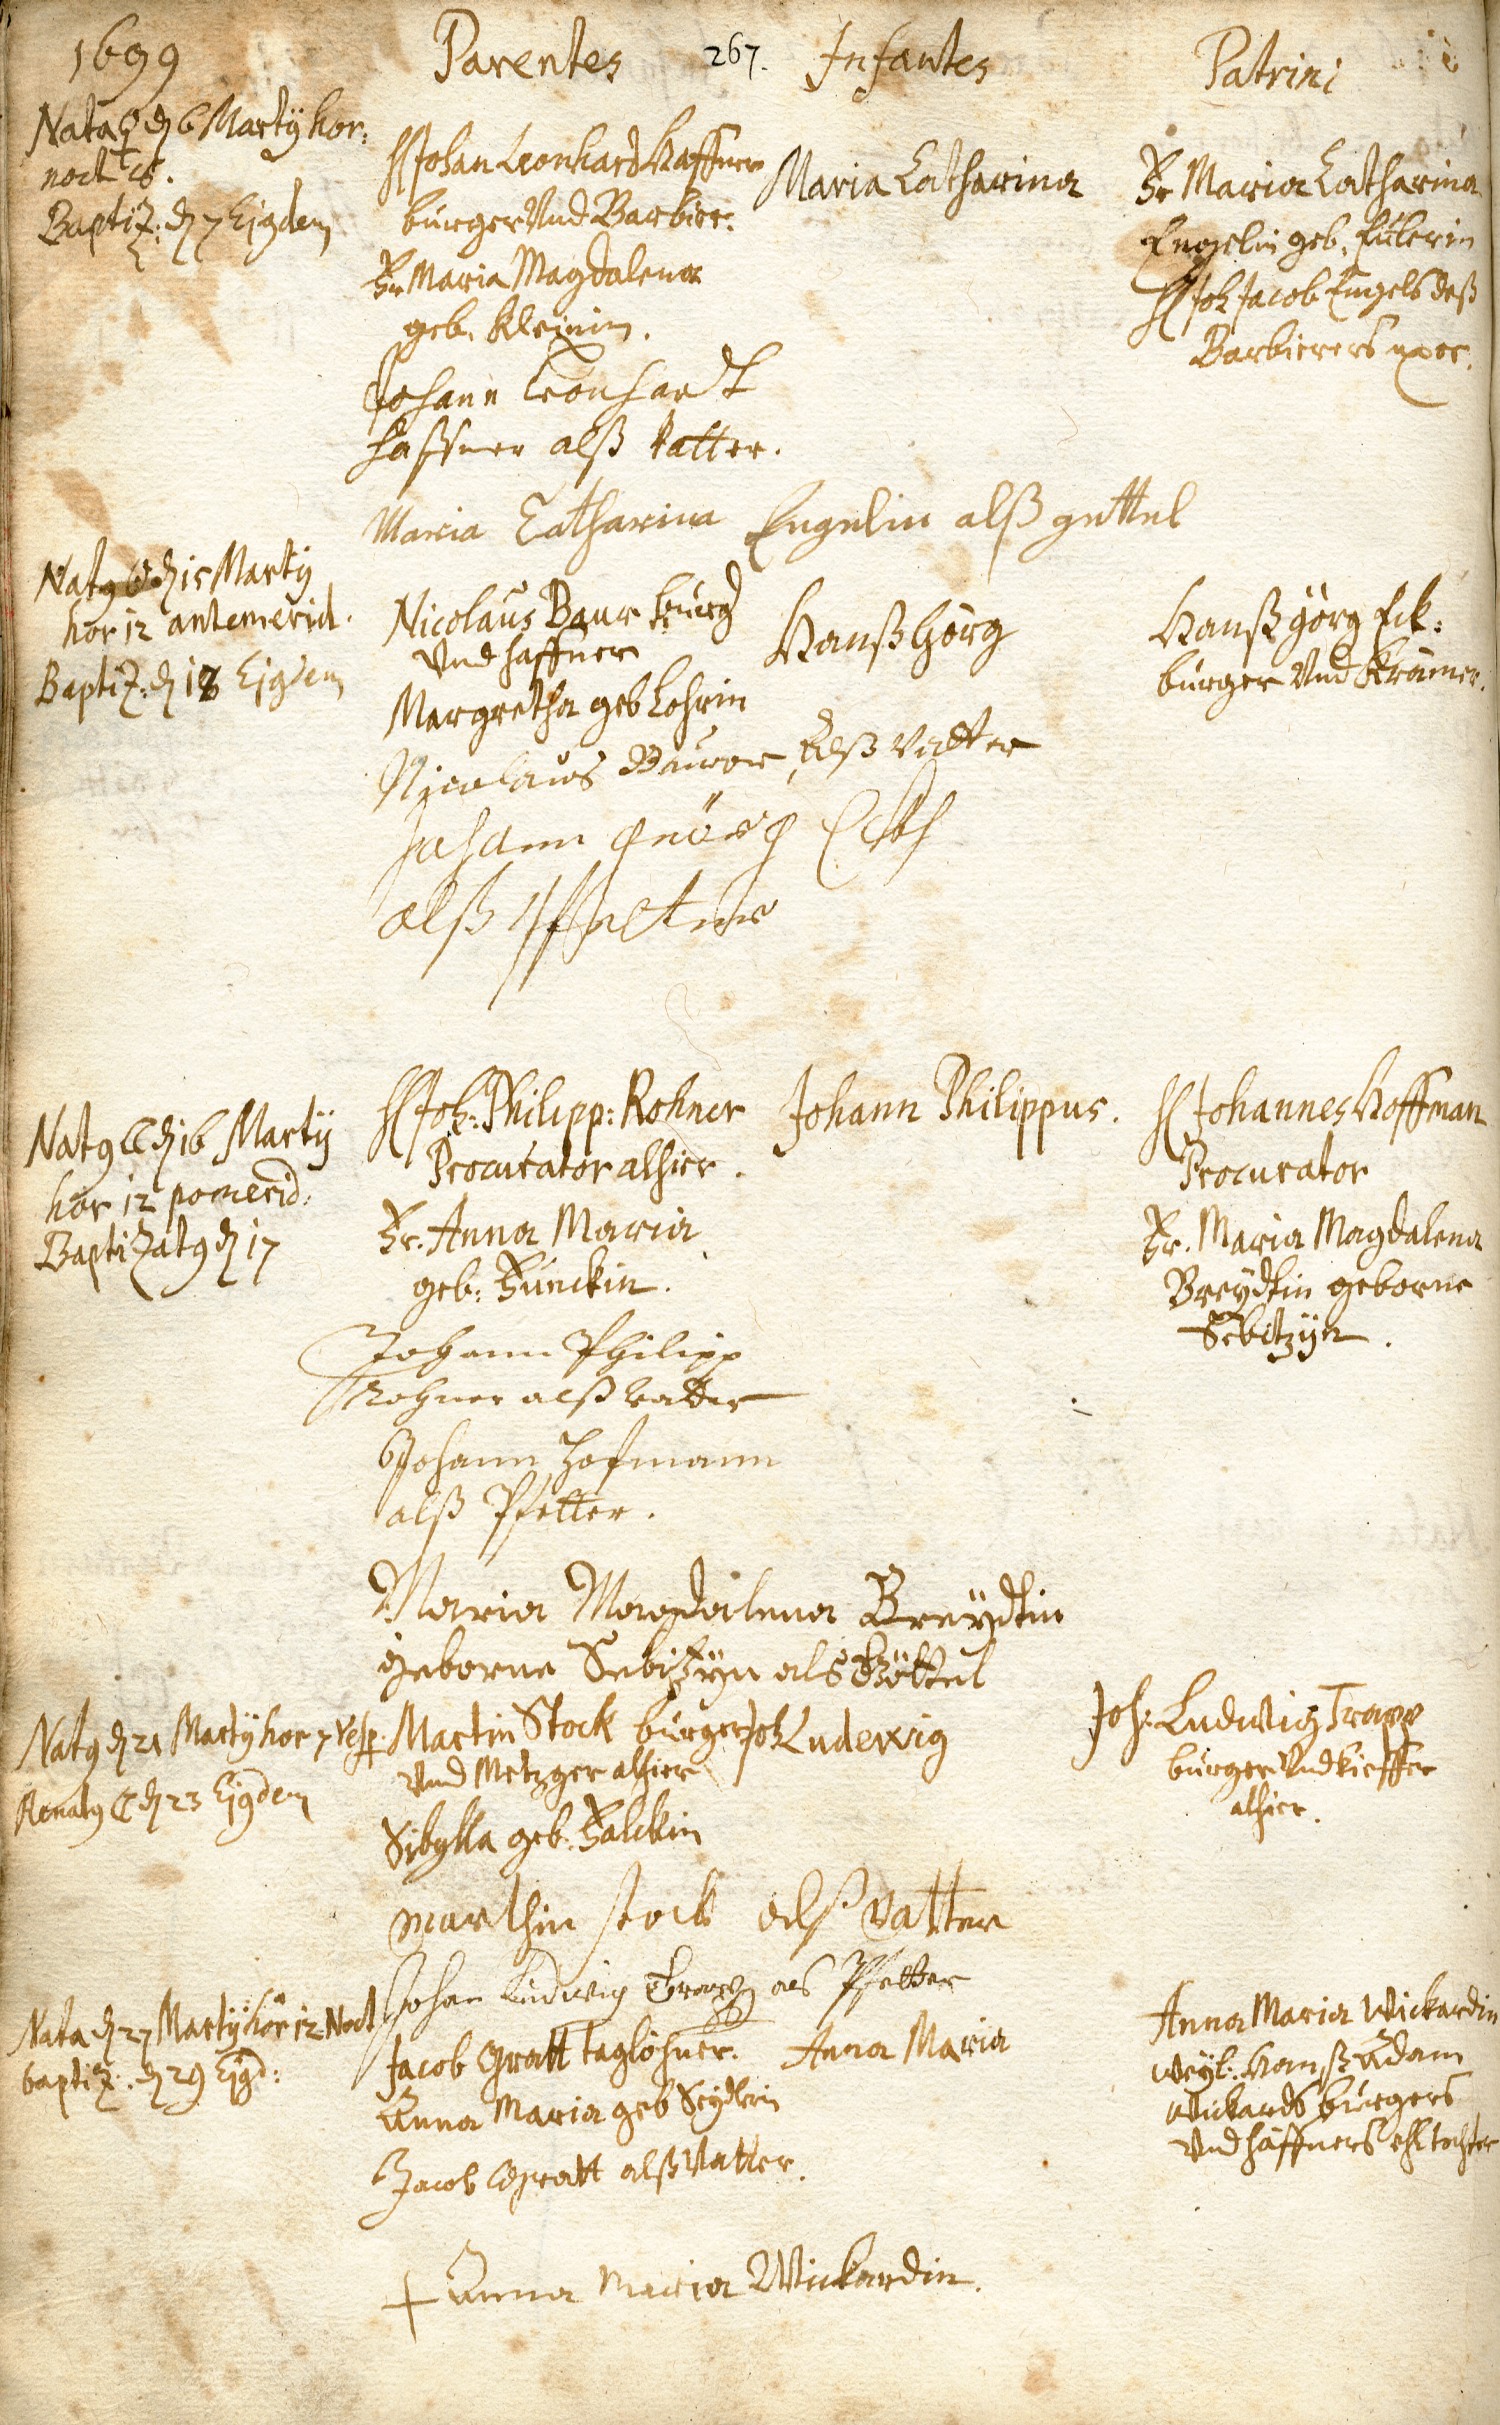 1699 Parentes 267. Infantes Patrini
Nata ♀ d 6 Martij hor:
noct 8.
Baptiz: d 7 Ejgdem
H Johan Leonhard Haffner
burger Und Barbier.
Fr Maria Magdalena
geb. Kleinin.
Maria Catharina
Fr Maria Catharina
Engelin geb. Eulerin
H Joh Jacob Engels deß
Barbierers uxor.
Johann Leonhardt
Haffner alß Vatter.
Maria Catharina Engelin alß gettel
Nat9 d 15 Martij
hor 12 antemerid.
Baptiz: d 18 Ejgdem
Nicolaus Baur burg
Und haffner
Margretha geb Lohrin
Hanß Görg
Hanß görg Eck:
burger Und Krämer.
Nicolaus Baurer Alß Vatter
Johann Geörg Eckh
alß Pfetter
Nat9 ☾ d 16 Martij
hor 12 pomerid:
Baptizat9 d 17
H Joh: Philipp: Rohner
Procurator alhier.
Fr. Anna Maria
geb: Funckin.
Johann Philippus.
H Johannes Hoffman
Procurator
Fr. Maria Magdalena
Breydtin geborne
Sebitzin.
Johann Philipp
Rohner alß Vatter
Johann Hofmann
alß Pfetter.
Maria Magdalena Breÿdtin
geborne Sebizÿn als Göttel
Nat9 d 21 Martij hor 7 Vesp.
Renat9 ☾ d 23 Ejgdem
Martin Stock burger
Und Metzger alhier
Sibylla geb. Falckin
Joh Ludewig
Joh: Ludwig Trapp
burger Und kieffer
alhier.
Marthin stock alß Vatter
Johan Ludwig Trapp als Pfetter
Nata d 27 Martij hor 12 Noct
baptiz: d 29 Ejgd:
Jacob Gratt taglöhner.
Anna Maria geb Seydlerin
Anna Maria
Anna Maria Wickardin
weyl: Hanß Adam
Wickards burgers
Und häffners ehl tochter
Jacob Gratt alß Vatter.
+ Anna Maria Wickardin.